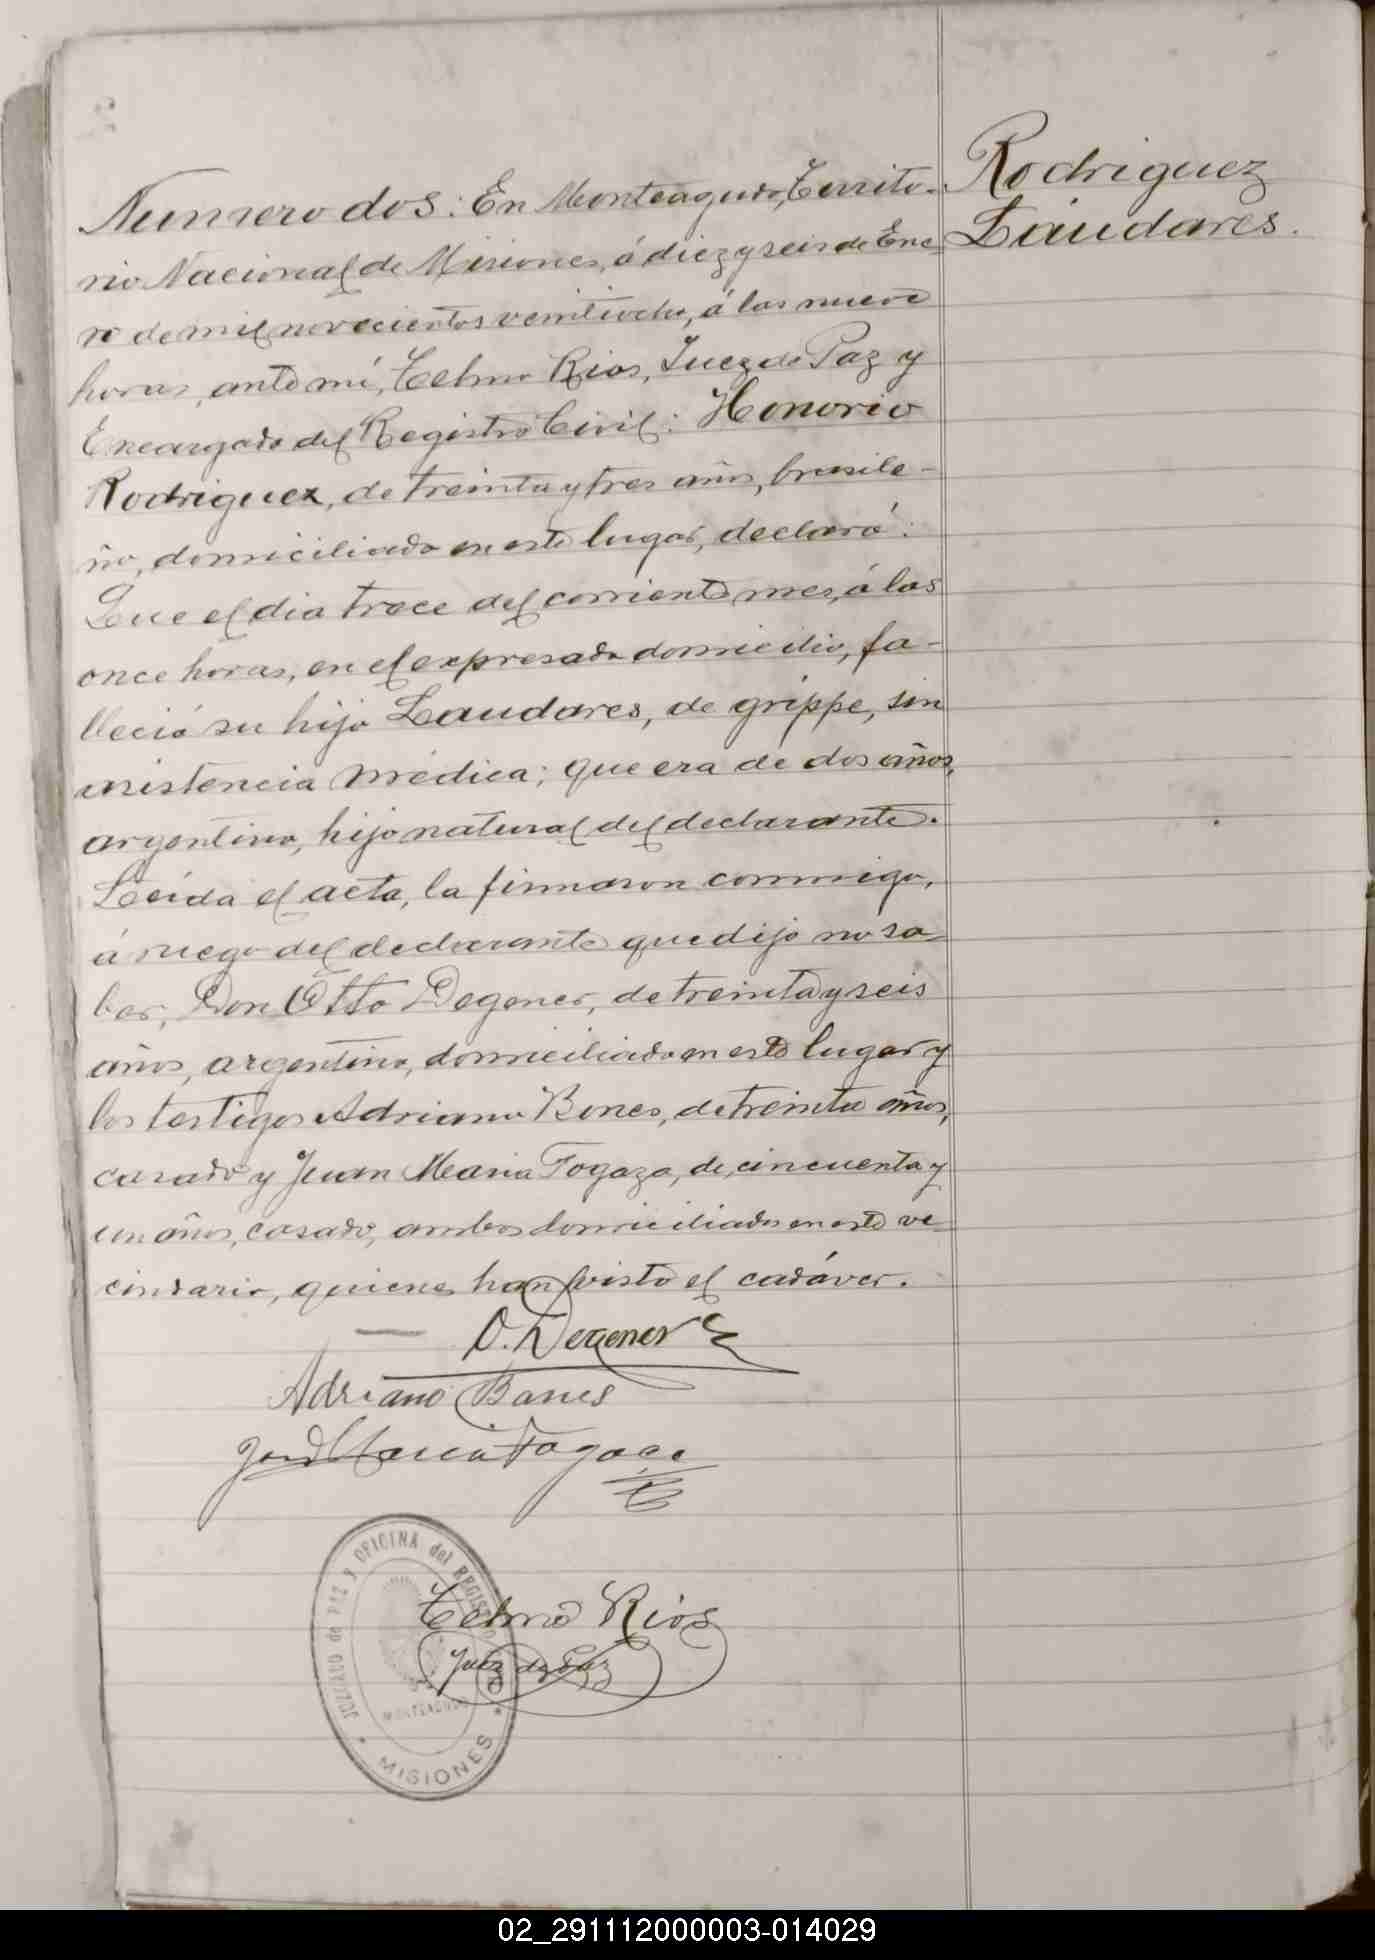 Rodriguez
Laudares.
Numero dos: En Monteagudo, Territo-
rio Nacional de Misiones, á diez y seis de Ene-
ro de mil novecientos veintiocho, á las nueve
horas, ante mí, Telmo Rios, Juez de Paz y
Encargado del Registro Civil: Honorio
Rodriguez, de treinta y tres años, brasile-
ño, domiciliado en este lugar, declaró:
Que el dia trece del corriente mes, á las
once horas, en el expresado domicilio, fa-
lleció su hijo Laudares, de grippe, sin
asistencia médica; que era de dos años,
argentino, hijo natural del declarante.
Leida el acta, la firmaron conmigo,
á ruego del declarante que dijo no sa-
ber, Don Otto Degener, de treinta y seis
años, argentino, domiciliado en este lugar y
los testigos Adriano Bones, de treinta años,
casado y Juan Maria Fogaza, de cincuenta y
un años, casado, ambos domiciliados en este ve-
cindario, quienes han visto el cadáver.
O. Degener
Adriano Bones
Maria Fogaça
Telmo Rios
Juez de Paz
JUZGADO de PAZ y OFICINA del REGISTRO
MONTEAGUDO
MISIONES
02_291112000003-014029